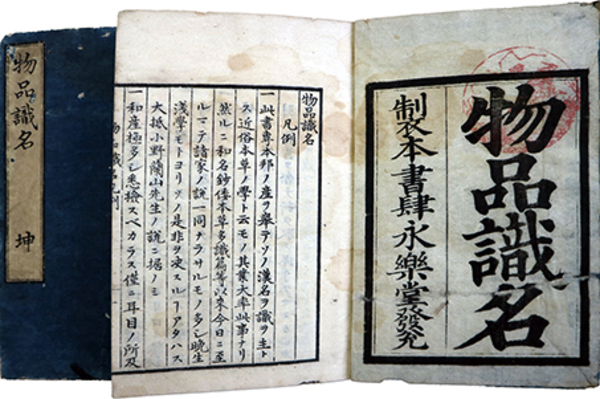 物品識名
製本書肆永樂堂發兌
物品識名
凡例
一此書ハ本邦ノ産ヲ擧テソノ漢名ヲ識ヲ主ト
ス近俗本草ノ學ト云モノ其業大率此事ナリ
然ルニ和名鈔倭本草多識篇等以來今日ニ至
ルマテ諸家ノ説一同ナラサルモノ多シ晩生
淺學モトヨリソノ是非ヲ决スルニアタハス
大抵小野蘭山先生ノ説ニ据ノミ
一和産極多シ悉檢スベカラス僅ニ耳目ノ所及
物品識名凡例
物品識名 坤